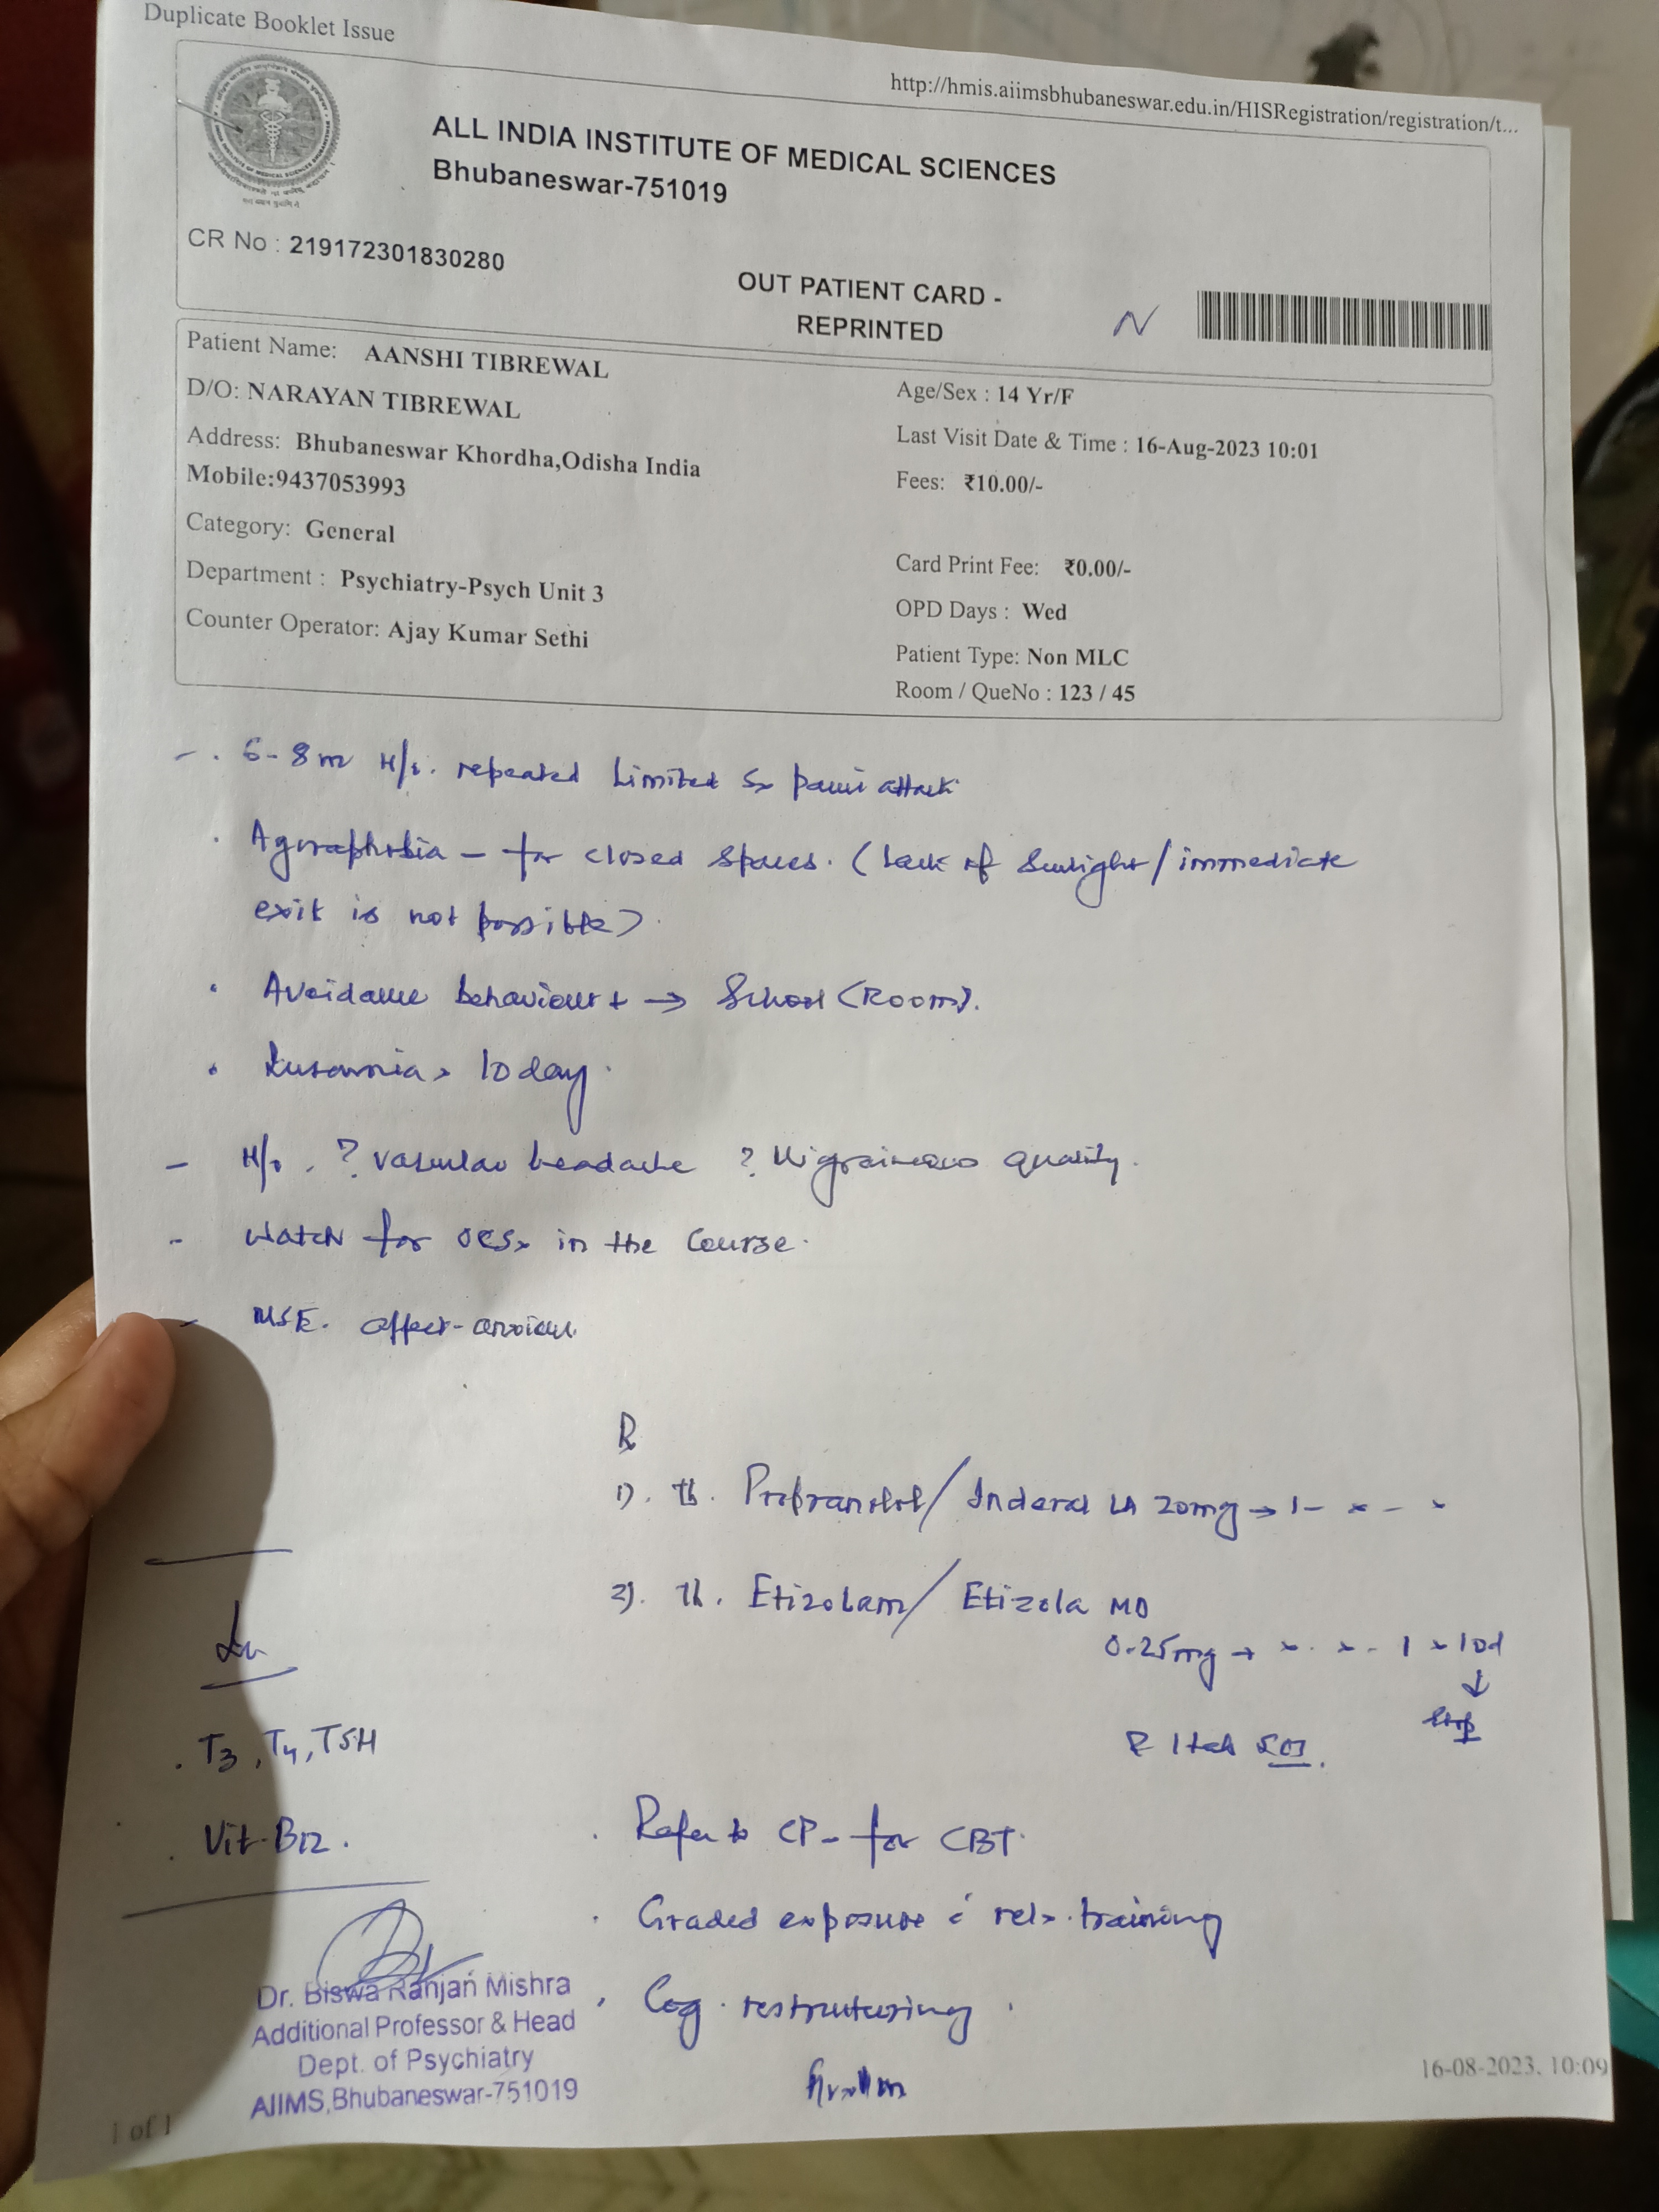 Duplicate Booklet Issue
http://hmis.aiimsbhubaneswar.edu.in/HISRegistration/registration/t...
ALL INDIA INSTITUTE OF MEDICAL SCIENCES
Bhubaneswar-751019
CR No : 219172301830280
OUT PATIENT CARD -
REPRINTED
N
Patient Name: AANSHI TIBREWAL
Age/Sex : 14 Yr/F
D/O: NARAYAN TIBREWAL
Last Visit Date & Time : 16-Aug-2023 10:01
Address: Bhubaneswar Khordha,Odisha India
Mobile:9437053993
Fees: ₹10.00/-
Category: General
Card Print Fee: ₹0.00/-
Department : Psychiatry-Psych Unit 3
OPD Days : Wed
Counter Operator: Ajay Kumar Sethi
Patient Type: Non MLC
Room / QueNo : 123 / 45
- . 6-8m H/o. repeated limited Sx panic attack
. Agoraphobia - for closed spaces. (Lack of Sunlight/immediate
exit is not possible)
. Avoidance behaviour + → School (Room).
. Insomnia > 10 day.
- H/o. ? vascular headache ? Migrainous quality.
- Watch for OCSx in the course.
- MSE. affect-anxious.
R
1). Tb. Propranolol/Inderal LA 20mg → 1 - x - x
2). Tb. Etizolam/Etizola MD
0.25mg → x - x - 1 x 10d
↓
stop
1tab SOS.
T3, T4, TSH
. Vit-B12.
. Refer to CP - for CBT.
. Graded exposure c̄ relx. training
. Cog. restructuring.
Dr. Biswa Ranjan Mishra
Additional Professor & Head
Dept. of Psychiatry
AIIMS,Bhubaneswar-751019
16-08-2023, 10:09
1 of 1